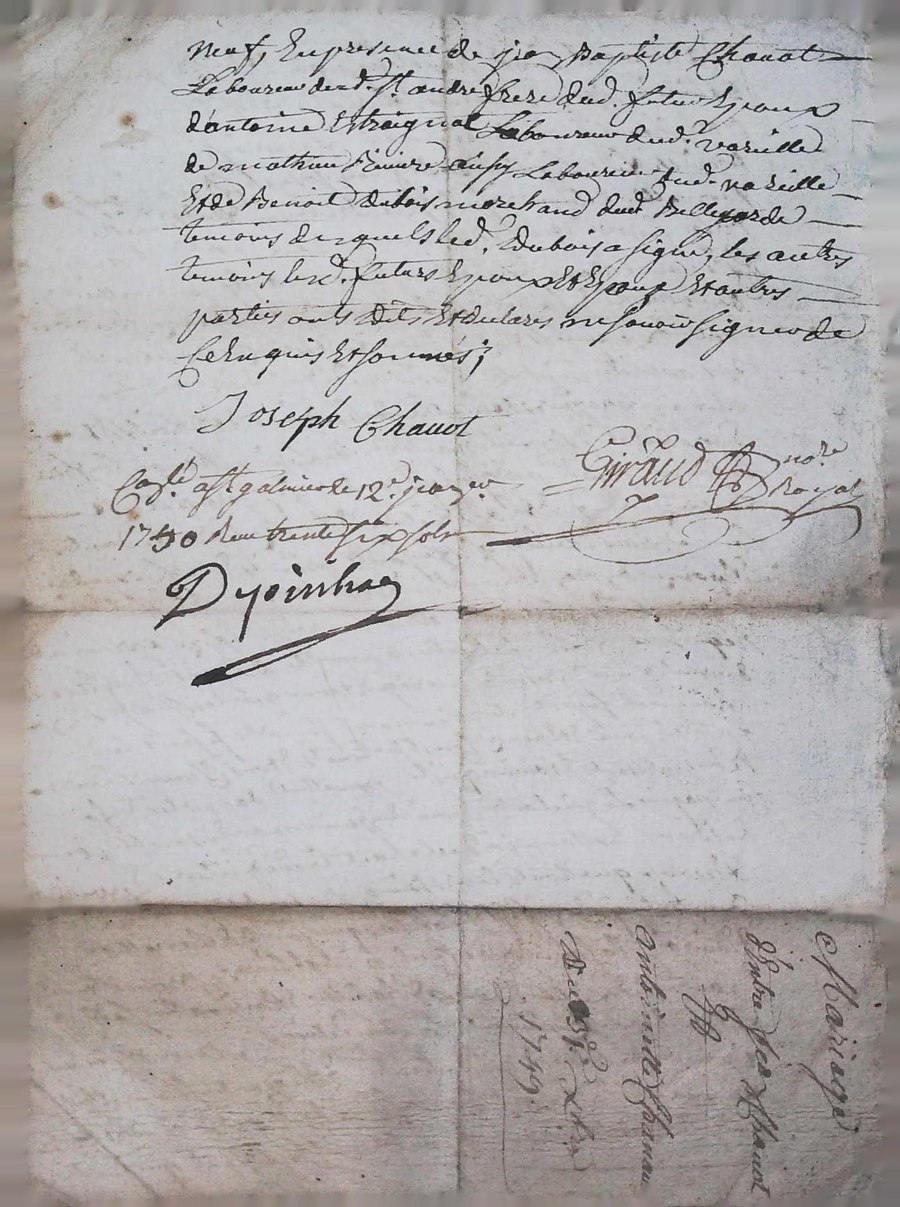 neuf, En presence de jean Baptiste Chauot
Laboureur dud. St. andre frere dud. futur Epoux
d'antoine Estraignat Laboureur dud. varsille
de mathieu Riviere aussy Laboureur dud. varsille
Et de Benoit dubois marchand dud. Bellegarde
temoins desquels led. dubois a signé, les autres
temoins lesd. futurs Epoux Et Epouse Et autres
parties onts dits Et declarés ne sauoir signer de
Ce Enquis Et sommés;
Joseph Chauot
Giraud nore. Royal
Conlé. a St. galmier le 12e. janver
1750 Reçu trente six sols
Mariage
d'Entre Jean Chauot
Et
antoinette
du xbre
1749